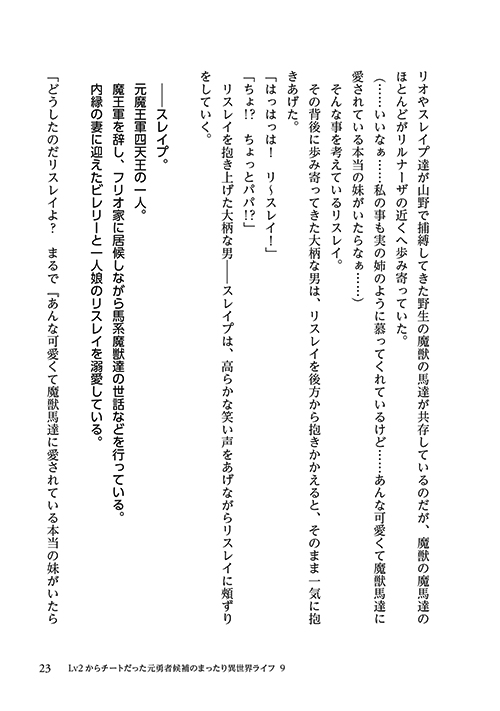 リオやスレイプ達が山野で捕縛してきた野生の魔獣の馬達が共存しているのだが、魔獣の魔馬達の
ほとんどがリルナーザの近くへ歩み寄っていた。
(……いいなぁ……私の事も実の姉のように慕ってくれているけど……あんな可愛くて魔獣馬達に
愛されている本当の妹がいたらなぁ……)
そんな事を考えているリスレイ。
その背後に歩み寄ってきた大柄な男は、リスレイを後方から抱きかかえると、そのまま一気に抱
きあげた。
「はっはっは! リ～スレイ!」
「ちょ!? ちょっとパパ!?」
リスレイを抱き上げた大柄な男――スレイプは、高らかな笑い声をあげながらリスレイに頬ずり
をしていく。
――スレイプ。
元魔王軍四天王の一人。
魔王軍を辞し、フリオ家に居候しながら馬系魔獣達の世話などを行っている。
内縁の妻に迎えたビレリーと一人娘のリスレイを溺愛している。
「どうしたのだリスレイよ? まるで『あんな可愛くて魔獣馬達に愛されている本当の妹がいたら
23 Lv2からチートだった元勇者候補のまったり異世界ライフ 9